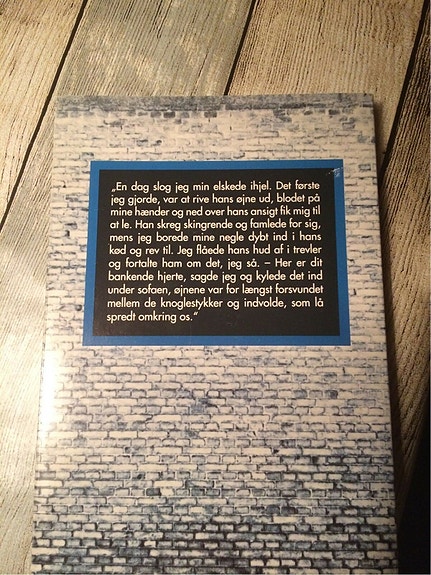 „En dag slog jeg min elskede ihjel. Det første
jeg gjorde, var at rive hans øjne ud, blodet på
mine hænder og ned over hans ansigt fik mig til
at le. Han skreg skingrende og famlede for sig,
mens jeg borede mine negle dybt ind i hans
kød og rev til. Jeg flåede hans hud af i trevler
og fortalte ham om det, jeg så. – Her er dit
bankende hjerte, sagde jeg og kylede det ind
under sofaen, øjnene var for længst forsvundet
mellem de knoglestykker og indvolde, som lå
spredt omkring os.”